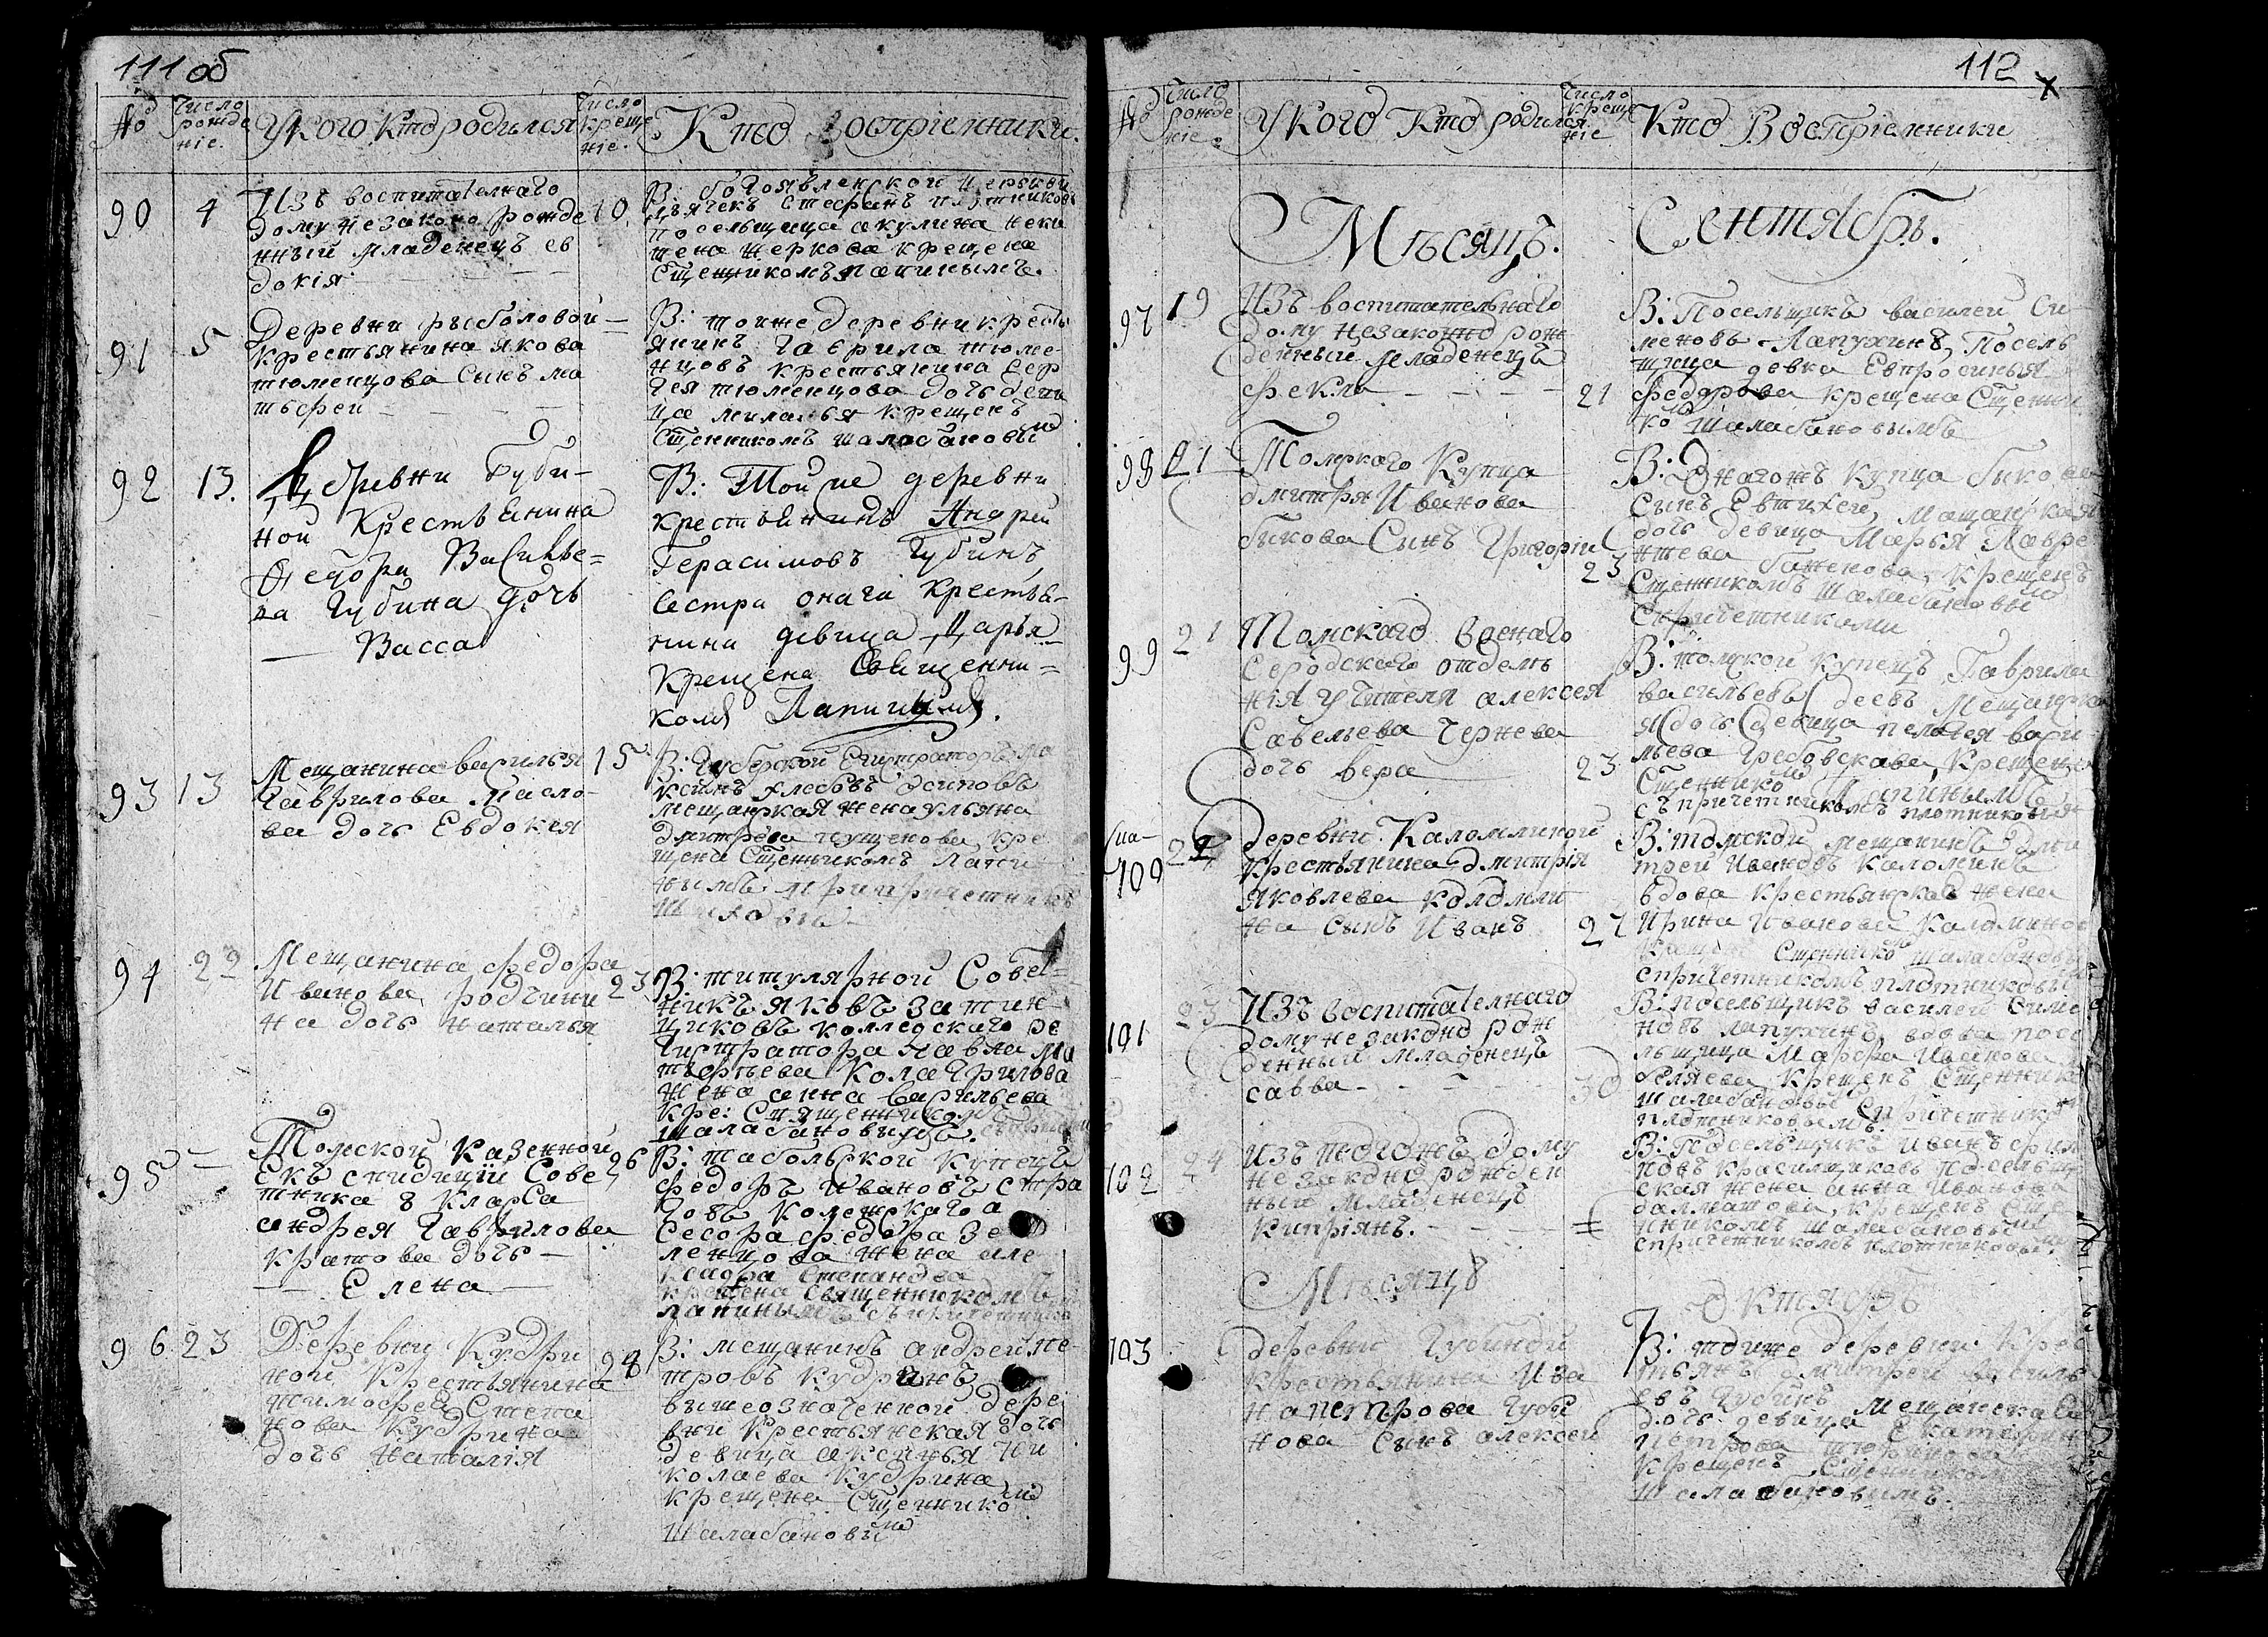 111 об
№
Число рожде ніе.
У кого кто родился
Число креще ніе.
Кто Воспріемники.
90
4
Изъ воспитателнаго
дому незаконо рожде
нный младенецъ ев
докія
10.
В: богоявленской церкви
дьячекъ Стефанъ плотниковъ
посельщица акулина
крещена
Сщенникомъ лапинымъ.
91
5
Деревни рыболовой
крестьянина якова
тюменцова сынъ ма
тьфей
В: тоиже деревни кресть
янинъ гаврила тюме-
нцовъ крестьянина Сер
гея тюменцова дочь деви
ца крещенъ
Сщенникомъ шалабановымъ
92
13.
Деревни Губи-
ной Крестьянина
Федора Василье=
ва Губина дочь
Васса
В: Той же деревни
крестьянинъ Андрей
Герасимовъ Губинъ,
Сестра онаго крестья-
нина девица Дарья
Крещена Священни=
комъ Лапинымъ.
93
13
Мещанина василья
Гаврилова Масло-
ва дочь Евдокея
15
В: Губерской
Глебовъ Осиповъ
мещанская жена ульяна
дмитрева кре
щена Сщенникомъ Лапи
нымъ
94
22
Мещанина федора
Иванова родчини
на дочь наталья
23
В: титулярной Совет=
никъ яковъ
колледскаго ре
гистратора павла ма
тьфьева
жена анна васильева
Кре: Священникомъ
шалабановымъ.
95
Томской казенной
Екъспидиціи Сове
тника 8 Класса
андрея Гаврилова
кратова дочь
Елена
26
В: табольской купецъ
федоръ Ивановъ
колежскаго а
Сесора федора Зе
ленцова жена але
ксадра Степанова
крещена Священникомъ
лапинымъ
96
23
Деревни Кудри
ной Крестьянина
тимофея Степа
нова Кудрина
дочь Наталія
28
В: мещанинъ андрей пе-
тровъ Кудринъ
вышеозначенной дере
вни Крестьянская дочь
девица аксинья Ни
колаева Кудрина
крещена Сщенникомъ
Шалабановымъ
112
№
Число рожде ніе.
У кого Кто родился
Число креще ніе
Кто Воспріемники
Мѣсяцъ.
Сентябрь.
97
19
Изъ воспитательнаго
дому незаконно рож
денный младенецъ
фекла
21
В: Посельщикъ василей Си
меновъ Лапухинъ, Посель
щица девка Евпросинья
федорова крещена Сщенни
комъ Шалабановымъ
98
21
Томскаго Купца
дмитрия Иванова
бикова Сынъ Григорій
23
В: Онагожъ купца бикова
Сынъ Евтихей, Мещанская
дочь девица Марья Лавре
нтева баженова, Крещенъ
Сщенникомъ Шалабановымъ
Спричетниками
99
21
Томскаго военаго
Сероdскаго отделе
нія учителя алексея
Савельева Чернева
дочь вера
23
В: томской купецъ Гаврила
васильевъ Мещанска
я дочь девица пелагея васи-
льева Гребовскова, Крещена
Сщенникомъ Лапинымъ
съ причетникомъ плотниковымъ
100
22
Деревни Каломиной
Крестьянина дмитрія
Яковлева Коломи
на Сынъ Иванъ
27
В: томской мещанинъ дми
трей Ивановъ Каломинъ
вдова крестьянская жена
Ирина Иванова Каломинова
Сщенникомъ шалабановымъ
спричетникомъ плотниковымъ
101
23
Изъ воспитателнаго
дому незаконо рож
денный младенецъ
савва
30
В: посельщикъ василей Симе
новъ лапухинъ вдова посе
льщица Марфа Иванова
беляева Крещенъ Сщенникомъ
шалабановымъ Спричетникомъ
плотниковымъ.
102
24
Изъ тогожъ дому
незаконо рожден
ный младенецъ
Кипріянъ.
=
В: Посельщикъ Иванъ фили
повъ красильщиковъ посельщ
ская жена анна Иванова
далматова, крещенъ Сще
нникомъ шалабановымъ
спричетникомъ плотниковымъ.
Мѣсяцъ
Октябрь
103
деревни Губиной
крестьянина Ива
на петрова Губи
нова Сынъ алексей
В: тоиже деревни Крес
тьянъ дмитрей василь
евъ Губинъ мещанска
дочь девица Екатерина
петрова
Крещенъ Сщенникомъ
Шалабановымъ.